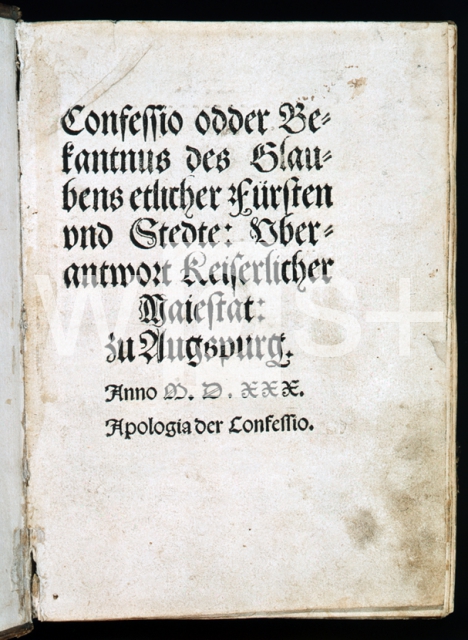 Confessio odder Be-
kantnus des Glau-
bens etlicher Fürsten
vnd Stedte: Vber-
antwort Keiserlicher
Maiestat:
zu Augspurg.
Anno M. D. XXX.
Apologia der Confessio.